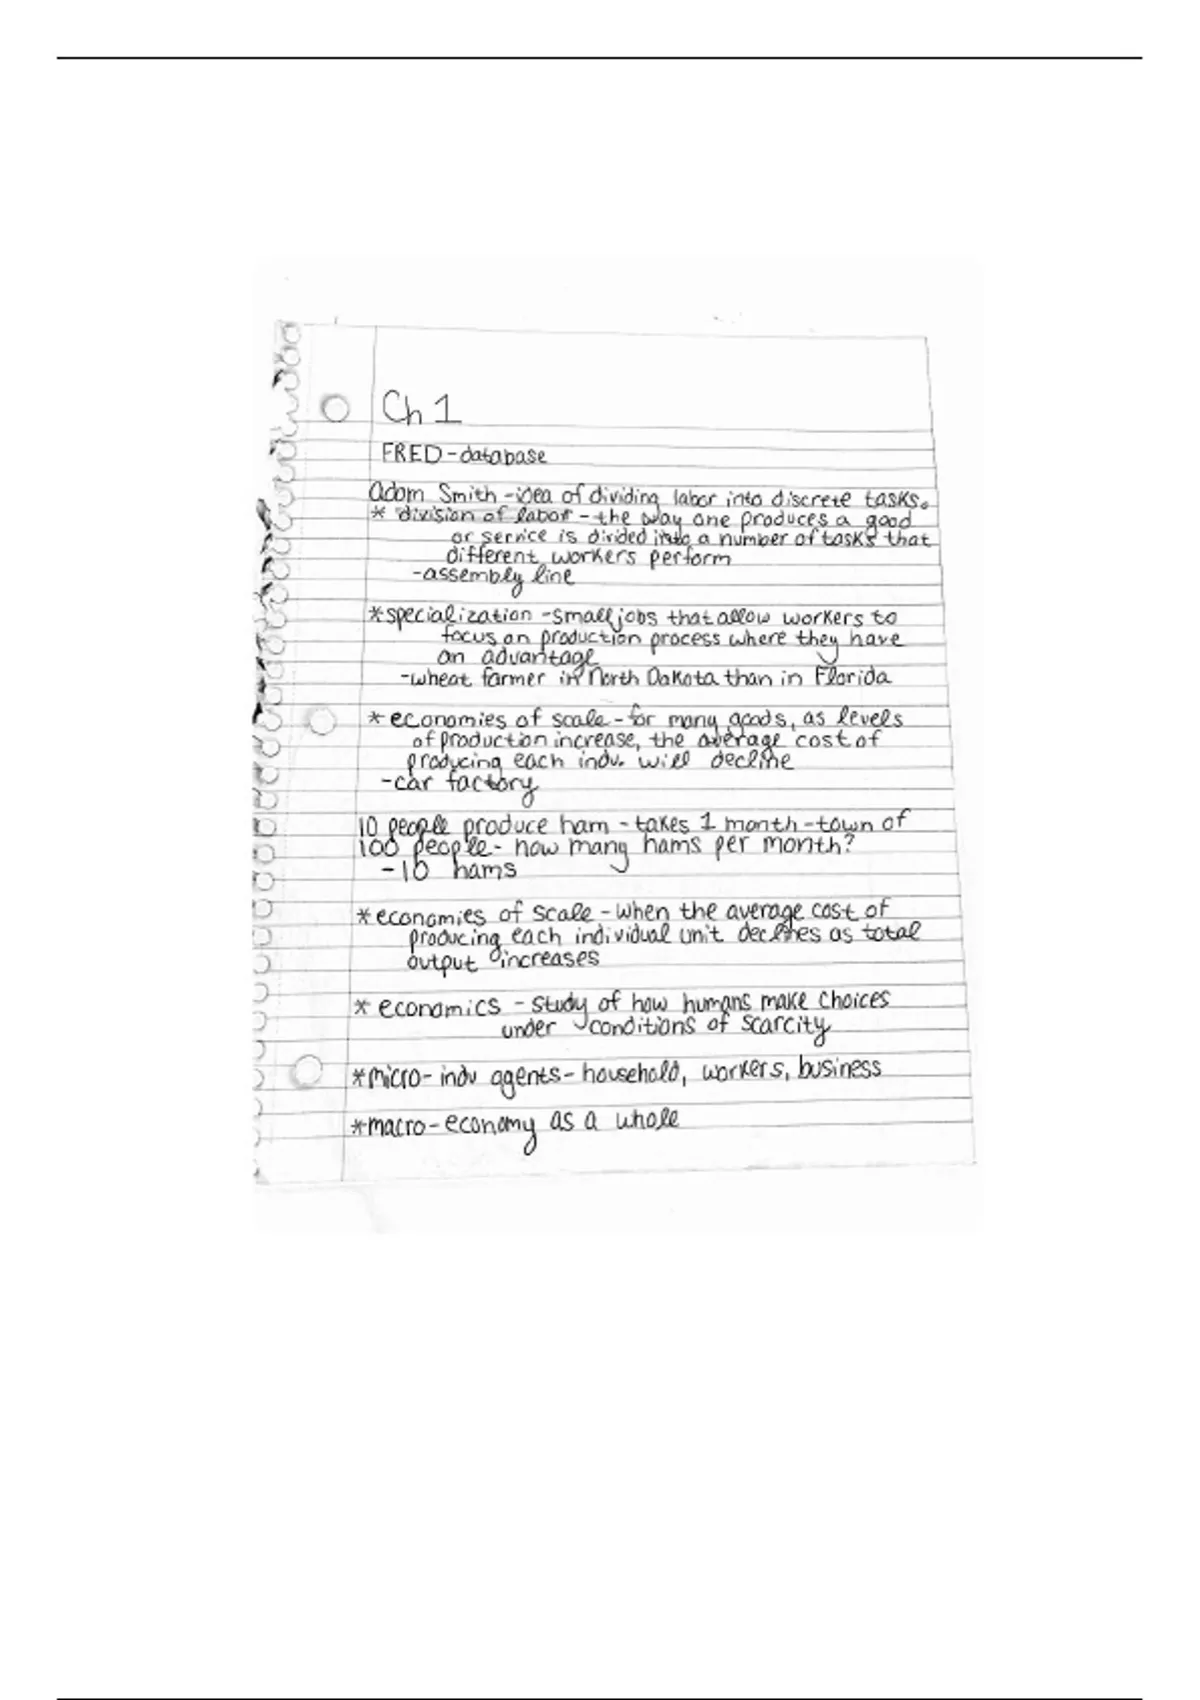 Ch 1
FRED - database
Adam Smith - idea of dividing labor into discrete tasks.
* division of labor - the way one produces a good
or service is divided into a number of tasks that
different workers perform
- assembly line
* specialization - small jobs that allow workers to
focus on production process where they have
an advantage
- wheat farmer in North Dakota than in Florida
* economies of scale - for many goods, as levels
of production increase, the average cost of
producing each indv. will decline
- car factory
10 people produce ham - takes 1 month - town of
100 people - how many hams per month?
- 10 hams
* economies of scale - when the average cost of
producing each individual unit declines as total
output increases
* economics - study of how humans make choices
under conditions of scarcity
* micro - indv agents - household, workers, business
* macro - economy as a whole